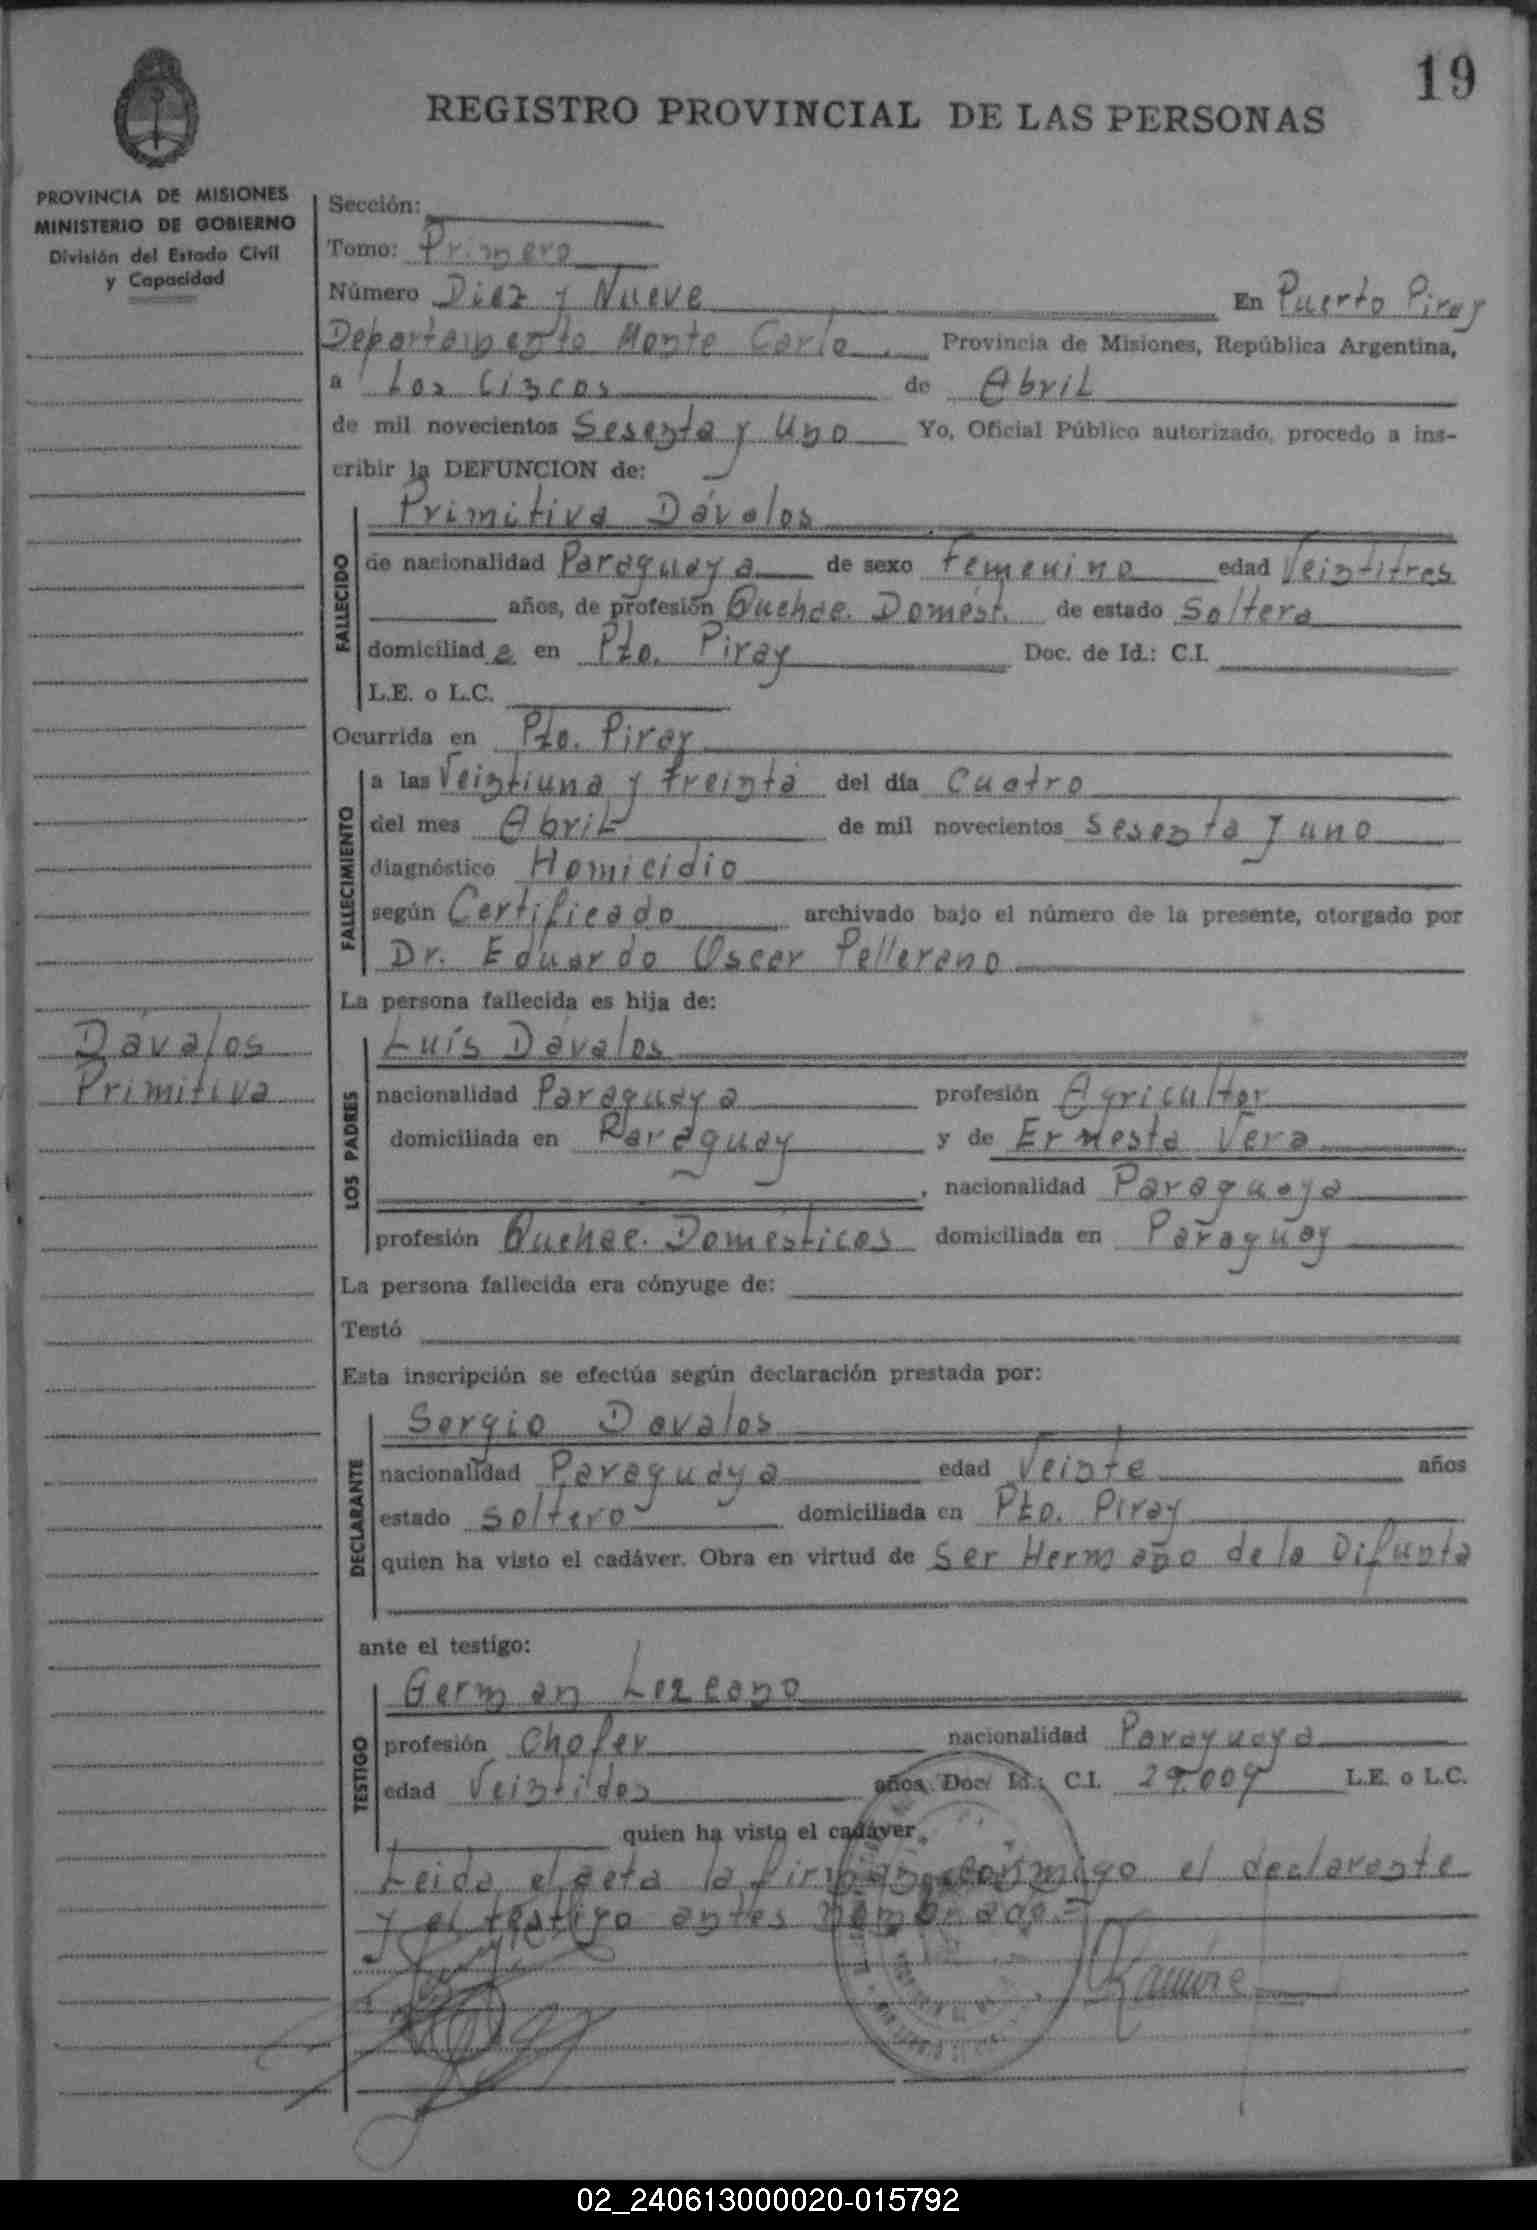 19
REGISTRO PROVINCIAL DE LAS PERSONAS
PROVINCIA DE MISIONES
MINISTERIO DE GOBIERNO
División del Estado Civil
y Capacidad
Sección:
Tomo: Primero
Número Diez y Nueve En Puerto Piray
Departamento Monte Carlo. Provincia de Misiones, República Argentina,
a Los Cincos de Abril
de mil novecientos Sesenta y Uno Yo, Oficial Público autorizado, procedo a ins-
cribir la DEFUNCION de:
FALLECIDO
Primitiva Dávalos
de nacionalidad Paraguaya de sexo Femenino edad Veintitres
años, de profesión Quehac. Domést. de estado Soltera
domiciliada en Pto. Piray Doc. de Id.: C.I.
L.E. o L.C.
Ocurrida en Pto. Piray
FALLECIMIENTO
a las Veintiuna y treinta del día Cuatro
del mes Abril de mil novecientos Sesenta y uno
diagnóstico Homicidio
según Certificado archivado bajo el número de la presente, otorgado por
Dr. Eduardo Oscar Pellerano
La persona fallecida es hija de:
Dávalos
Primitiva
LOS PADRES
Luís Dávalos
nacionalidad Paraguaya profesión Agricultor
domiciliada en Paraguay y de Ernesta Vera
, nacionalidad Paraguaya
profesión Quehac. Domésticos domiciliada en Paraguay
La persona fallecida era cónyuge de:
Testó
Esta inscripción se efectúa según declaración prestada por:
DECLARANTE
Sergio Davalos
nacionalidad Paraguaya edad Veinte años
estado soltero domiciliada en Pto. Piray
quien ha visto el cadáver. Obra en virtud de Ser Hermano de la Difunta
ante el testigo:
TESTIGO
German Lezcano
profesión Chofer nacionalidad Paraguaya
edad Veintidos años. Doc. Id.: C.I. 29.009 L.E. o L.C.
quien ha visto el cadáver.
Leida el acta la firman conmigo el declarante
y el testigo antes nombrado.=
02_240613000020-015792